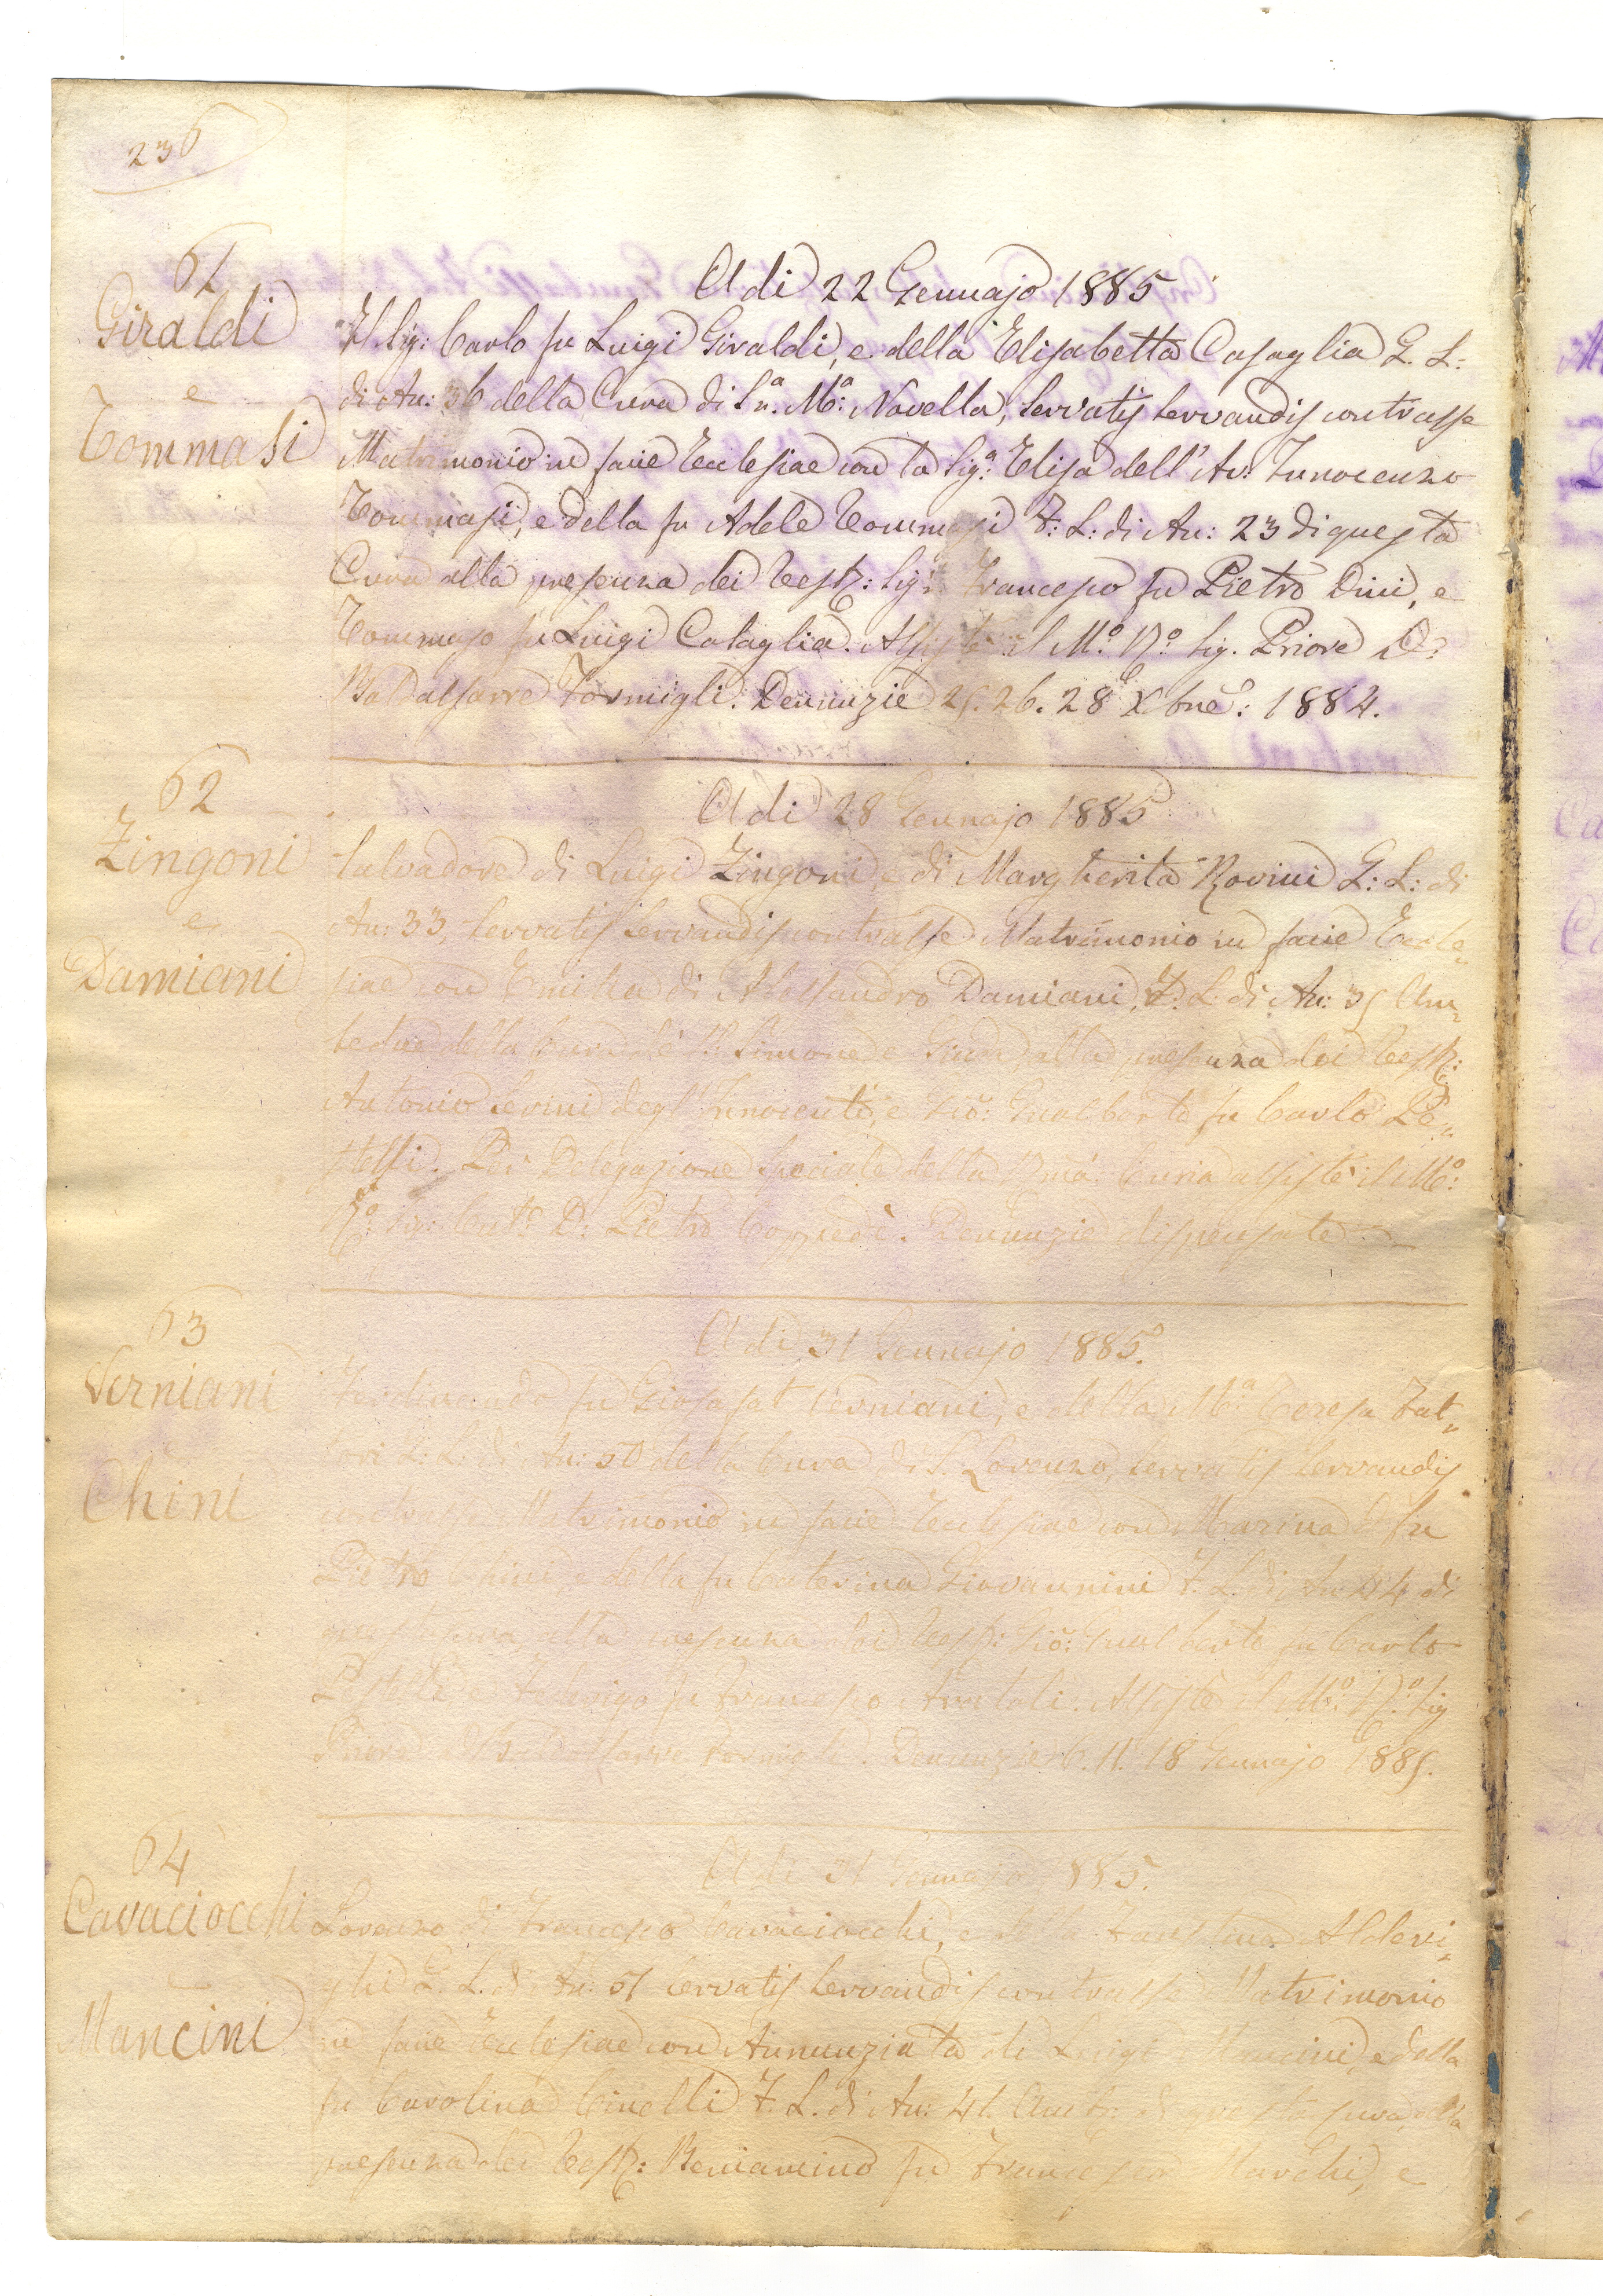 236
61
Giraldi
e
Tommasi
A di 22 Gennajo 1885
Il Sig: Carlo fu Luigi Giraldi, e della Elisabetta Casaglia G. L:
di An: 36 della Cura di Sa. Ma: Novella, servatis servandis contrasse
Matrimonio in facie Ecclesiae con la Siga. Elisa dell' Av: Innocenzo
Tommasi, e della fu Adele Tommasi F: L: di An: 23 di questa
Cura alla presenza dei Testj: Sigri Francesco fu Pietro Dini, e
Tommaso fu Luigi Cataglia. Assistè il Mo. Ro. Sig. Priore D:
Baldassarre Formigli. Denunzie 25. 26. 28 Xbre: 1884.
62
Zingoni
e
Damiani
A di 28 Gennajo 1885
Salvadore di Luigi Zingoni, e di Margherita Rovini G: L: di
An: 33, servatis servandis contrasse Matrimonio in facie Eccle„
siae con Emilia di Alessandro Damiani, F: L: di An: 35 Am„
bedue della Cura de' SS. Simone e Giuda, alla presenza dei Testj:
Antonio Serini degl' Innocenti, e Gio: Gualberto fu Carlo Pe„
stelli. Per Delegazione speciale della Rma: Curia assistè il Mo:
Ro: Sig: Curto D: Pietro Coppedè. Denunzie dispensate
63
Verniani
e
Chini
A di 31 Gennajo 1885.
Ferdinando fu Giosafat Verniani, e della Ma Teresa Fat„
tori G: L: di An: 50 della Cura di S. Lorenzo, servatis servandis
contrasse Matrimonio in facie Ecclesiae con Marina del fu
Pietro Chini, e della fu Caterina Giovannini F. L: di An: 44 di
questa Cura, alla presenza dei Testj: Gio: Gualberto fu Carlo
Pestelli, e Federigo fu Francesco Assistè il Mo: Ro: Sig
Priore Baldassarre Formigli. Denunzie 6. 11. 18 Gennajo 1885.
64
Cavaciocchi
e
Mancini
A di 31 Gennajo 1885.
Lorenzo di Francesco Cavaciocchi, e della Faustina Alderi„
ghi G. L. di An: 51 servatis servandis contrasse Matrimonio
in facie Ecclesiae con Annunziata di Luigi Mancini, e della
fu Carolina Cinelli F. L. di An: 41. Ambj: di questa Cura, alla
presenza dei Testj: Beniamino fu Francesco Marchi, e